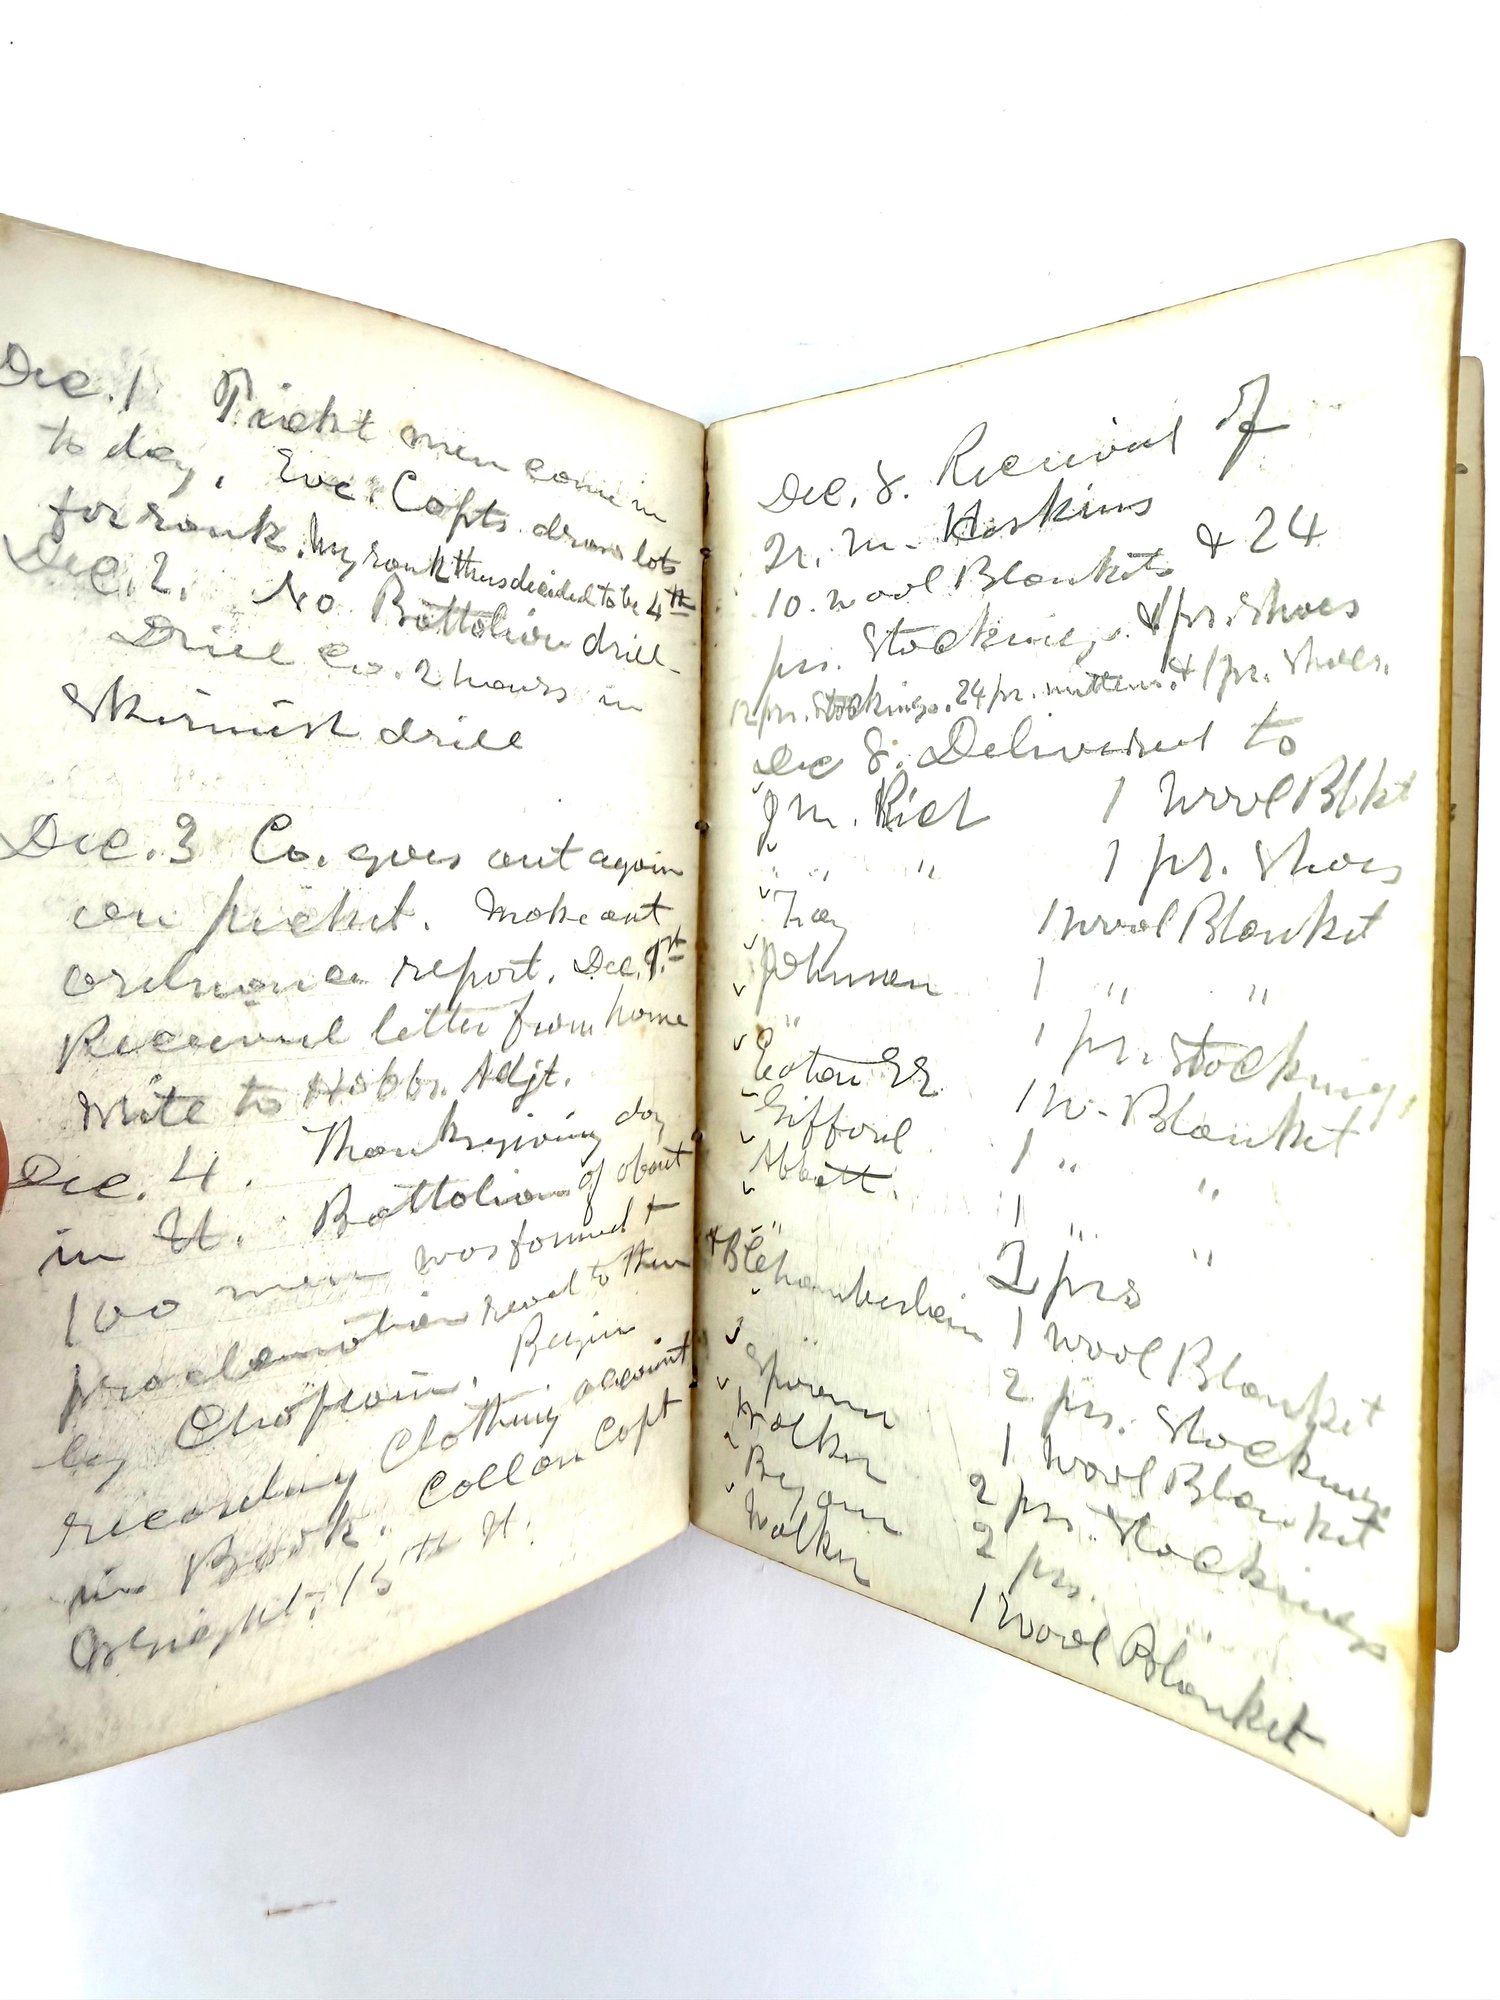 Dec. 1 Picket men come in
to day. Eve. Capts. draw lots
for rank. My rank thus decided to be 4th
Dec. 2. No Battalion drill
Drill Co. 2 hours in
Skirmish drill
Dec. 3 Co. goes out again
on picket. Make out
ordnance report. Dec. 1st
Received letter from home
Write to Hobbs. Adjt.
Dec. 4. Thanksgiving day
in Vt. Battalion of about
100 men was formed &
proclamation read to them
by Chaplain. Begin
recording Clothing account
in Book. Call on Capt
Wright. 15th Vt.
Dec. 8. Received of
Qr. M. Hoskins
10. wool Blankets & 24
prs. Stockings. & 1 pr. Shoes
12 prs. Stockings. 24 pr. mittens. & 1 pr. Shoes.
Dec 8. Delivered to
J M. Rich 1 Wool Blkt
" " " 1 pr. Shoes
Fay 1 wool Blanket
Johnson 1 " "
" 1 pr. Stockings
Eaton 1 W. Blanket
Gifford 1 " "
Abbott. 1 " "
" 2 prs
Chamberlain 1 Wool Blanket
" 2 prs. Stockings
1 Wool Blanket
Walker 2 prs. Stockings
Bryam 2 prs. "
Walker 1 Wool Blanket